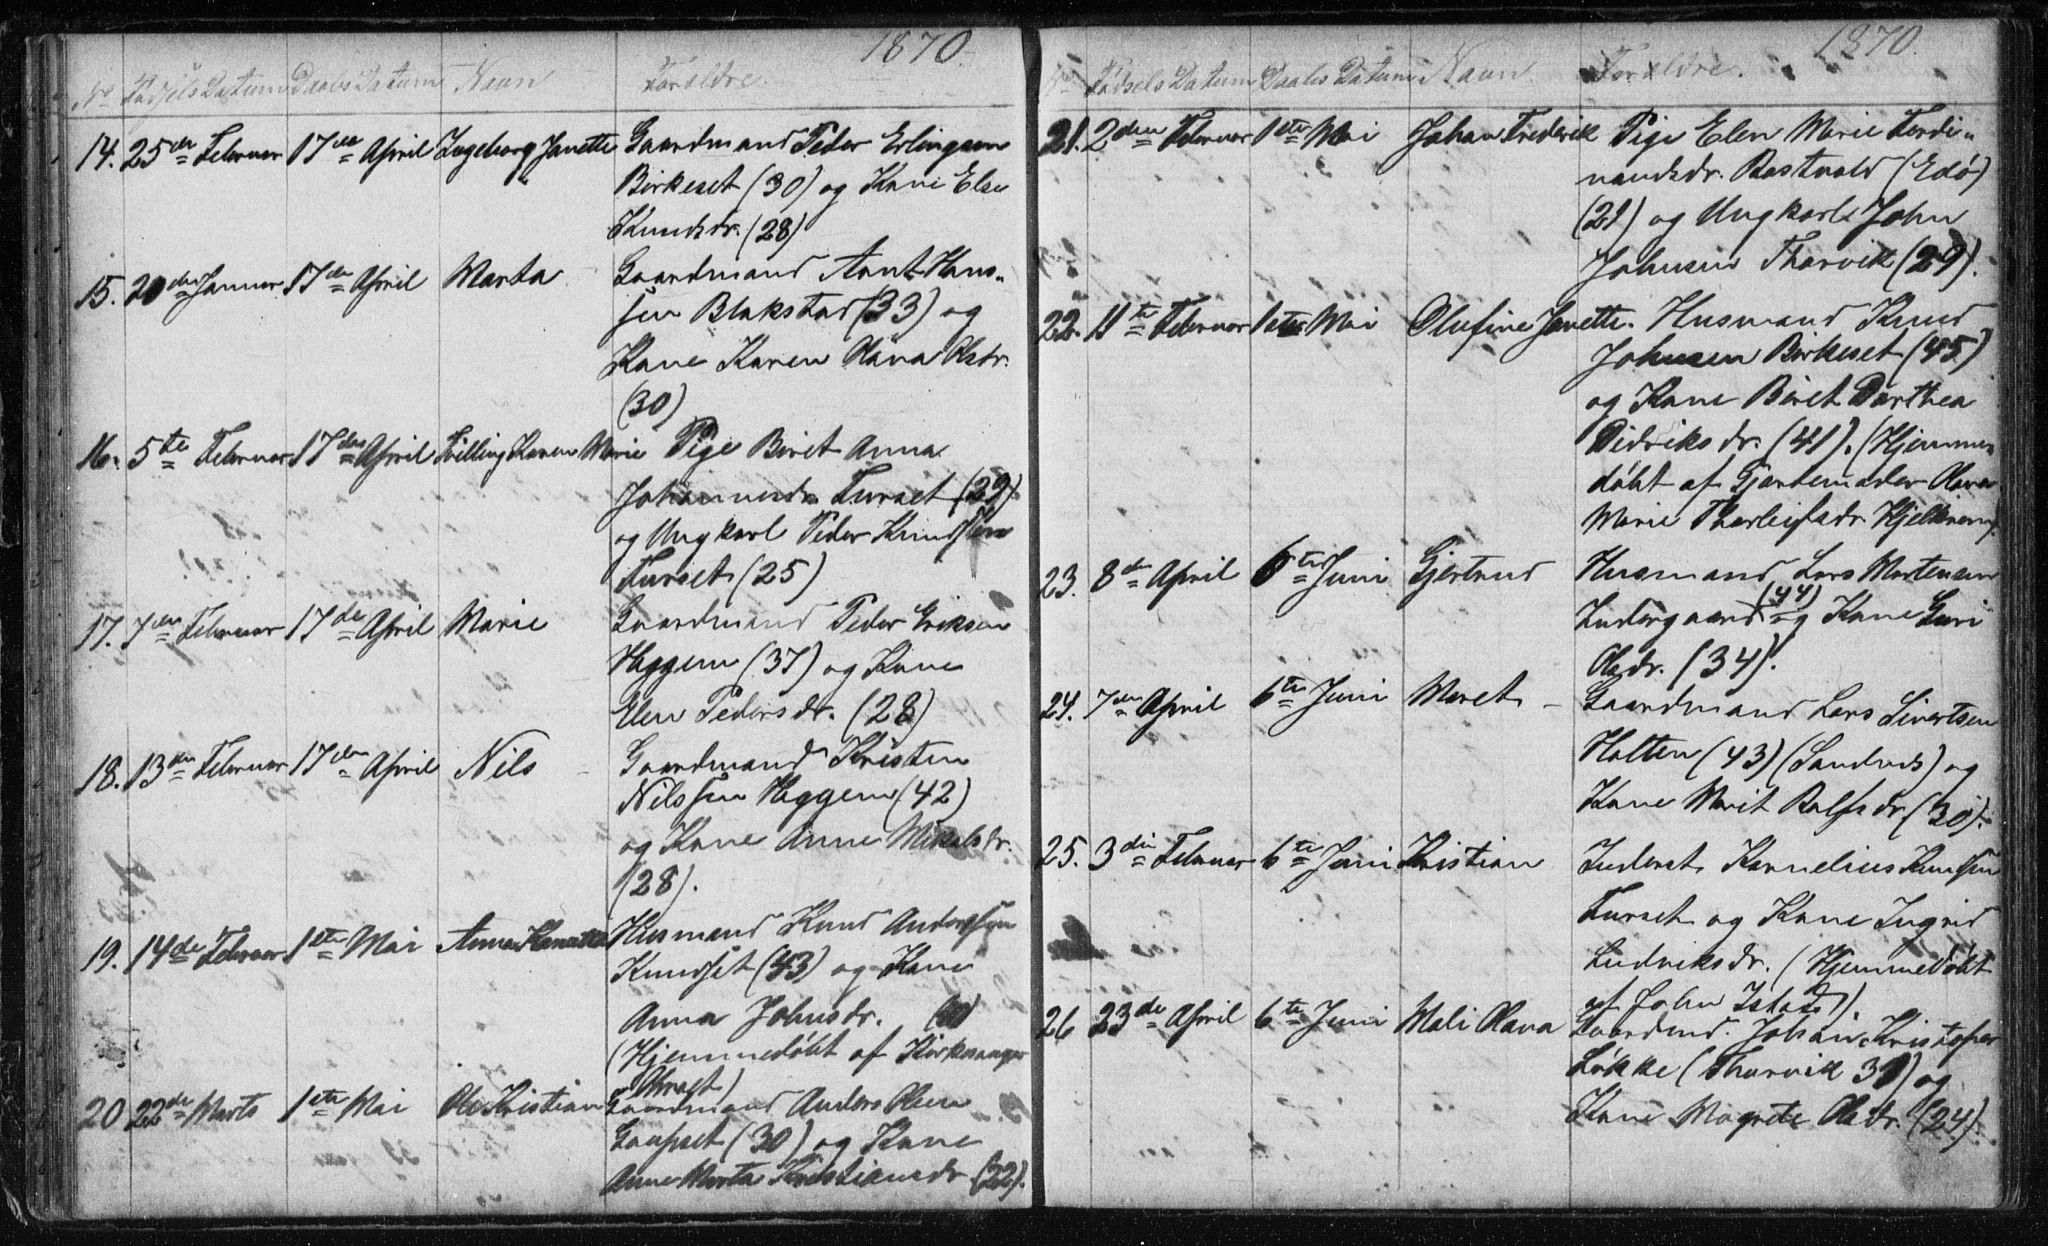 1870.
No Fødsels Datum Daabs Datum Navn Forældre.
14. 25de Februar 17de April Ingeborg Janette Gaardmand Peder Erlingsen
Birkeset (30) og Kone Else
Knudsdr. (28)
15. 20de Januar 17de April Marta Gaardmand Arnt Hans-
sen Blakstad (33) og
Kone Karen Olava Olsdr.
(30)
16. 5te Februar 17de April Tvilling Karen Marie Pige Beret Anna
Johannesdr. Furset (29)
og Ungkarl Peder Knudsen
Furset (25)
17. 7de Februar 17de April Marie Gaardmand Peder Eriksen
Heggem (37) og Kone
Elen Pedersdr. (28)
18. 13de Februar 17de April Nils Gaardmand Kristen
Nilssen Heggem (42)
og Kone Anne Mikalsdr.
(28).
19. 14de Februar 1ste Mai Anna Husmand Knud Anderssen
Knudset (43) og Kone
Anna Johnsdr.
(Hjemmedøbt af Kirkesanger
)
20 22de Marts 1ste Mai Ole Kristian Gaardmand Anders Olsen
Gaupset (30) og Kone
Anne Marta Kristiansdr (32).
1870.
No Fødsels Datum Daabs Datum Navn Forældre.
21. 2den Februar 1ste Mai Johan Frederik Pige Elen Marie Ferdi-
nandsdr. Rastvold (Edø)
(21) og Ungkarl John
Johnsen Thorvik (29).
22. 11te Februar 1ste Mai Olufine Janette. Husmand Knud
Johnsen Birkeset (45)
og Kone Beret Darthea
Didriksdr. (41). (Hjemme-
døbt af Gjordemoder Olava
Marie Thorleifsdr.
23. 8de April 6te Juni Gjertrud Husmand Lars Mortensen
Ludergaard (44) og Kone Guri
Olsdr. (34).
24. 7de April 6te Juni Meret Gaardmand Lars Sivertsen
Holten (43) (Sandvds) og
Kone Marit Rolfsdr (30).
25. 3die Februar 6te Juni Kristian Inderst Kornelius Knudsen
Furset og Kone Ingrid
Ludviksdr. (Hjemmedøbt
af John).
26 23de April 6te Juni Mali Olava Gaardmd. Johan Kristofer
Løkke (Thorvik 39) og
Kone Magrete Olsdr. (24).